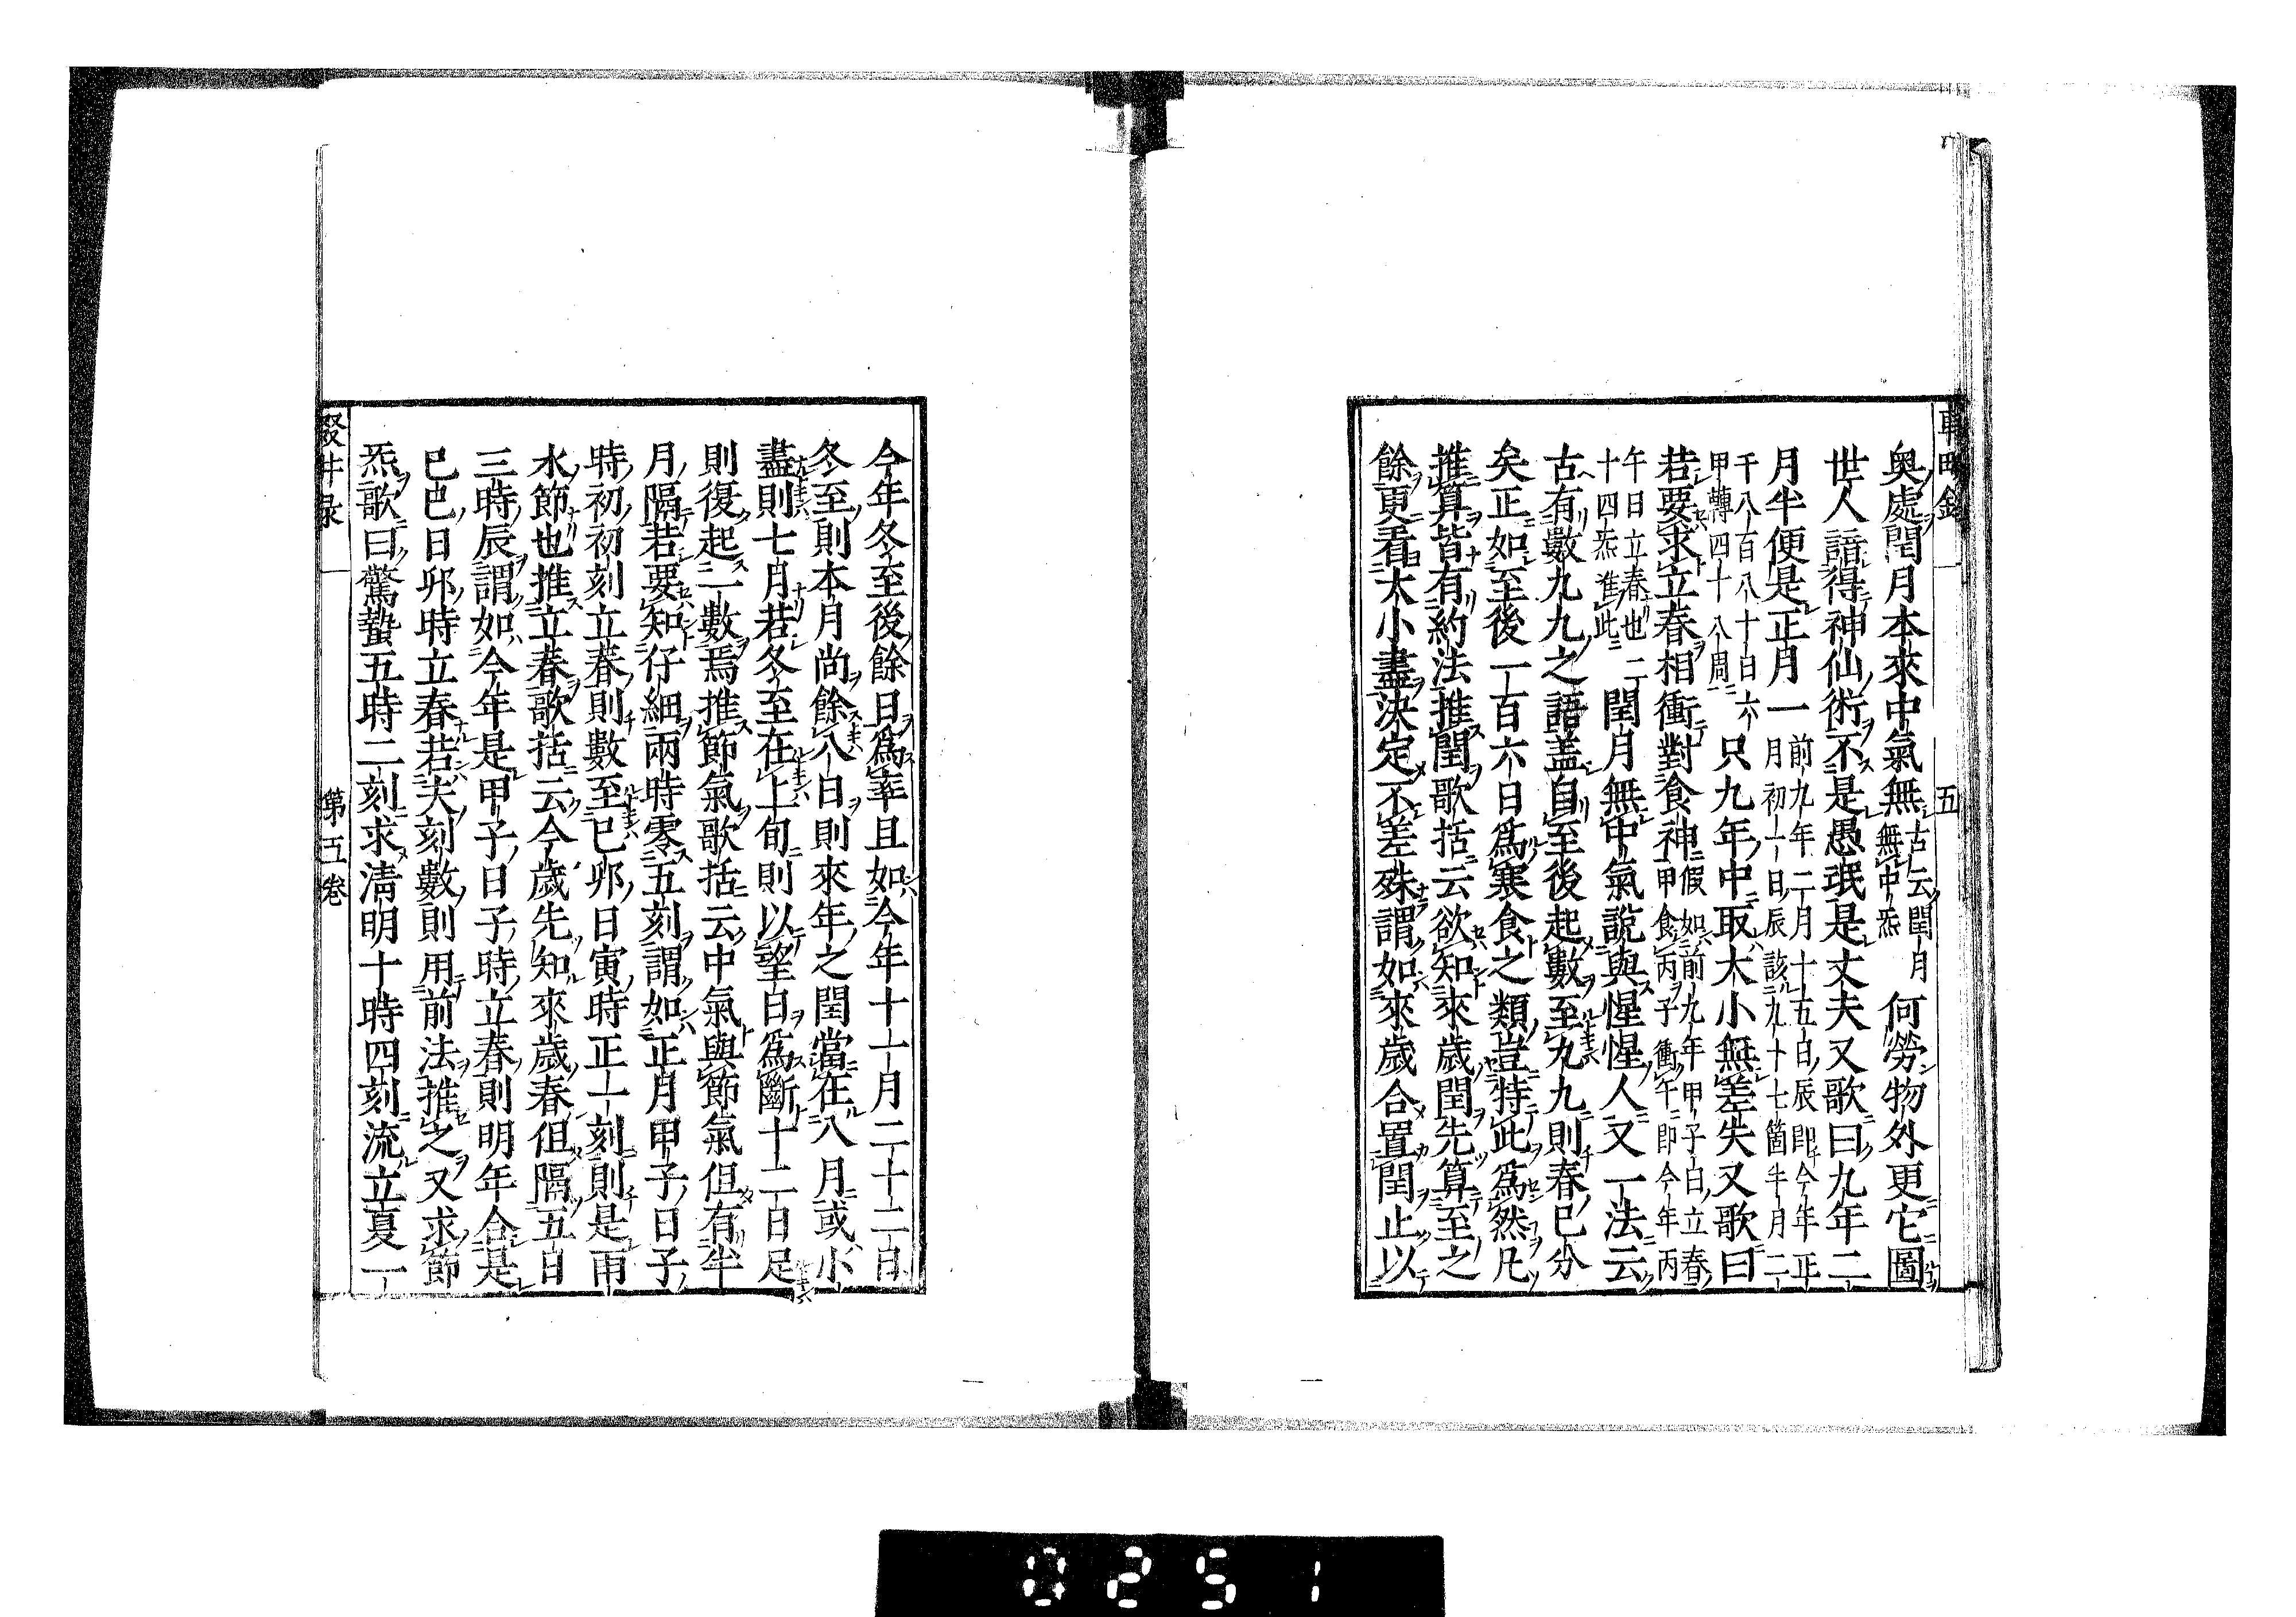 奧處閏月本來中氣無古云閏月無中炁何勞物外更它圖
世人諳得神仙術不是愚珉是丈夫又歌曰九年二
月半便是正月一前九年二月十五日辰即今年正月初一日辰該九十七箇半月二
千八百八十日六甲轉四十八周只九年中取大小無差失又歌曰
若要求立春相衝對食神假如前九年甲子日立春甲食丙子衝午即今年丙
午日立春也二十四炁準此閏月無中氣說與惺惺人又一法云
古有數九九之語盖自至後起數至九九則春已分
矣正如至後一百六日爲寒食之類豈特此爲然凡
推算皆有約法推閏歌括云欲知來歲閏先算至之
餘更看大小盡決定不差殊謂如來歲合置閏止以
車田錄
五
今年冬至後餘日爲率且如今年十一月二十二日
冬至則本月尚餘八日則來年之閏當在八月或小
盡則七月若冬至在上旬則以望日爲斷十二日足
則復起一數焉推節氣歌括云中氣與節氣但有半
月隔若要知仔細兩時零五刻謂如正月甲子日子
時初初刻立春則數至己卯日寅時正一刻則是雨
水節也推立春歌括云今歲先知來歲春但隔五日
三時辰謂如今年是甲子日子時立春則明年合是
己巳日卯時立春若夫刻數則用前法推之又求節
炁歌曰驚蟄五時二刻求清明十時四刻流立夏一
第五卷
0251